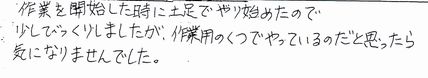 作業を開始した時に土足でやり始めたので
少しびっくりしましたが、作業用のくつでやっているのだと思ったら
気になりませんでした。